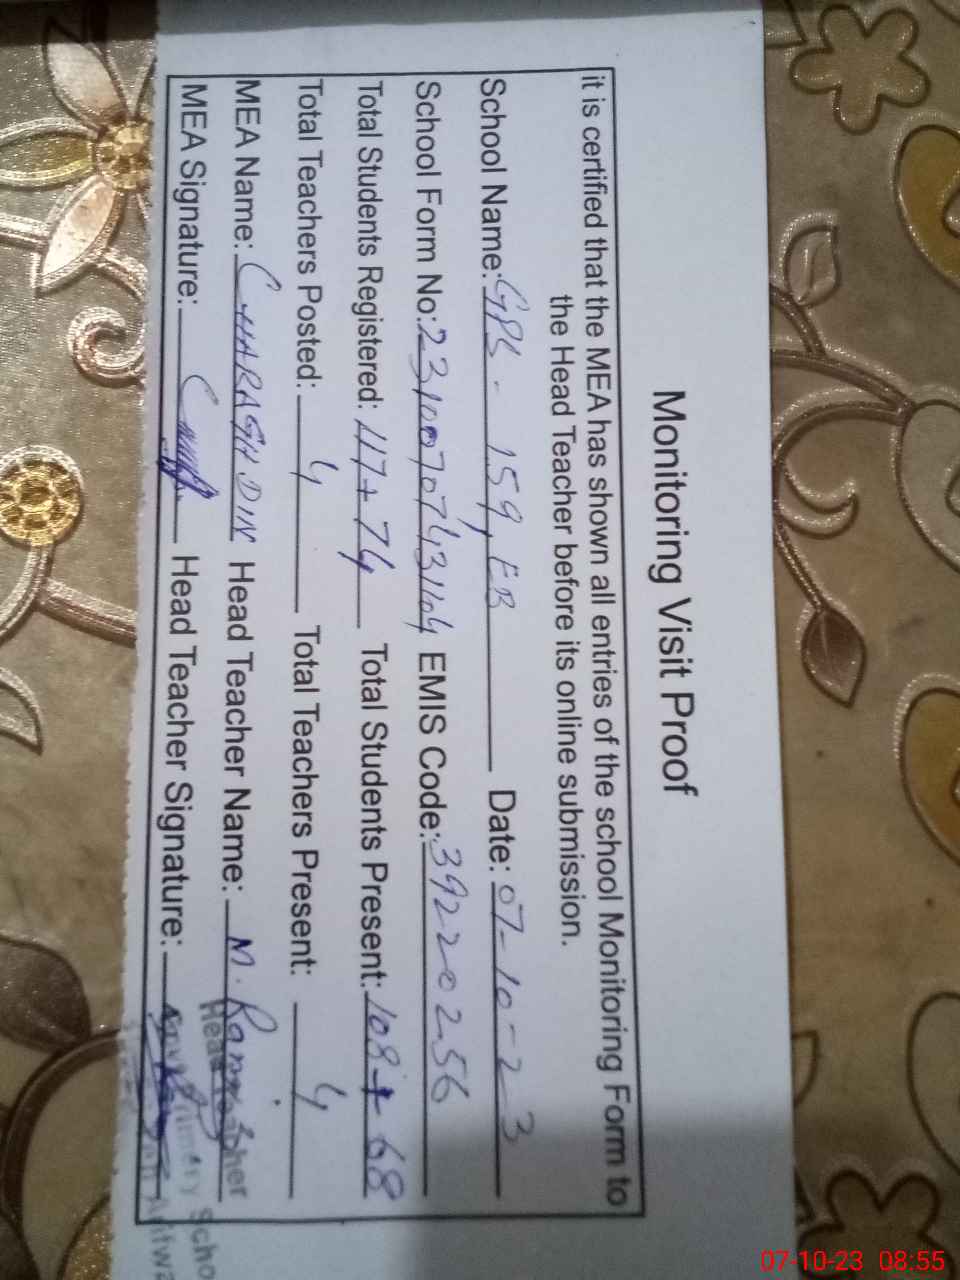 Monitoring Visit Proof
it is certified that the MEA has shown all entries of the school Monitoring Form to
the Head Teacher before its online submission.
School Name: GPS - 159, EB Date: 07-10-23
School Form No: EMIS Code: 39220256
Total Students Registered: 117+74 Total Students Present: 108+68
Total Teachers Posted: 4 Total Teachers Present: 4
MEA Name: CHARAGH DIN Head Teacher Name: M.
MEA Signature: Head Teacher Signature:
Head Teacher
07-10-23 08:55